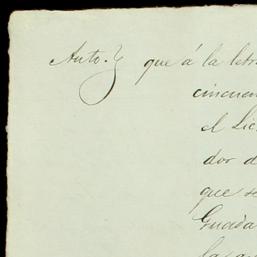 Auto.} que á la letra
cincuen
el Lic
dor d
que se